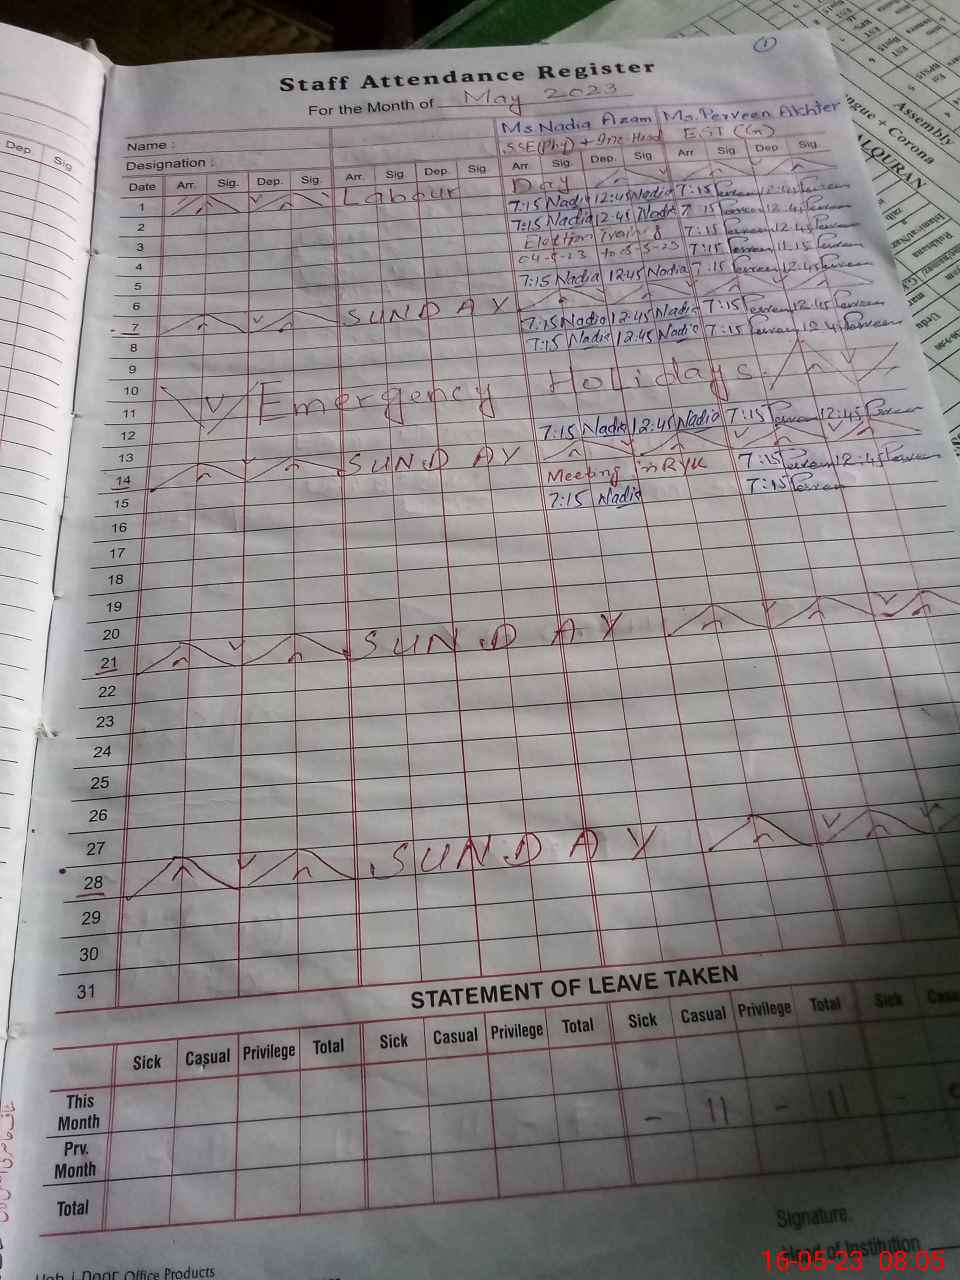 1
Staff Attendance Register
For the Month of May 2023
Name : Ms. Nadia Azam Ms. Perveen Akhter
Designation : SSE(Phy) + Inc. Head EST (Gn)
Date Arr. Sig. Dep. Sig. Arr. Sig. Dep. Sig Arr. Sig. Dep. Sig. Arr. Sig. Dep Sig.
1 Labour Day
2 7:15 Nadia 12:45 Nadia 7:15 Perveen 12:45 Perveen
3 7:15 Nadia 12:45 Nadia 7:15 Perveen 12:45 Perveen
4 Election Training 7:15 Perveen 12:45 Perveen
5 04-5-23 to 05-5-23 7:15 Perveen 11:15 Perveen
6 7:15 Nadia 12:45 Nadia 7:15 Perveen 12:45 Perveen
7 SUNDAY
8 7:15 Nadia 12:45 Nadia 7:15 Perveen 12:45 Perveen
9 7:15 Nadia 12:45 Nadia 7:15 Perveen 12:45 Perveen
10
11 Emergency Holidays.
12
13 7:15 Nadia 12:45 Nadia 7:15 Perveen 12:45 Perveen
14 SUNDAY
15 Meeting in RYK 7:15 Perveen 12:45 Perveen
16 7:15 Nadia 7:15 Perveen
17
18
19
20
21 SUNDAY
22
23
24
25
26
27
28 SUNDAY
29
30
31
STATEMENT OF LEAVE TAKEN
Sick Casual Privilege Total Sick Casual Privilege Total Sick Casual Privilege Total Sick
This Month
Prv. Month - 11 - 11 -
Total
Signature.
Head of Institution
Office Products
Assembly
ngue + Corona
ALQURAN
16-05-23 08:05